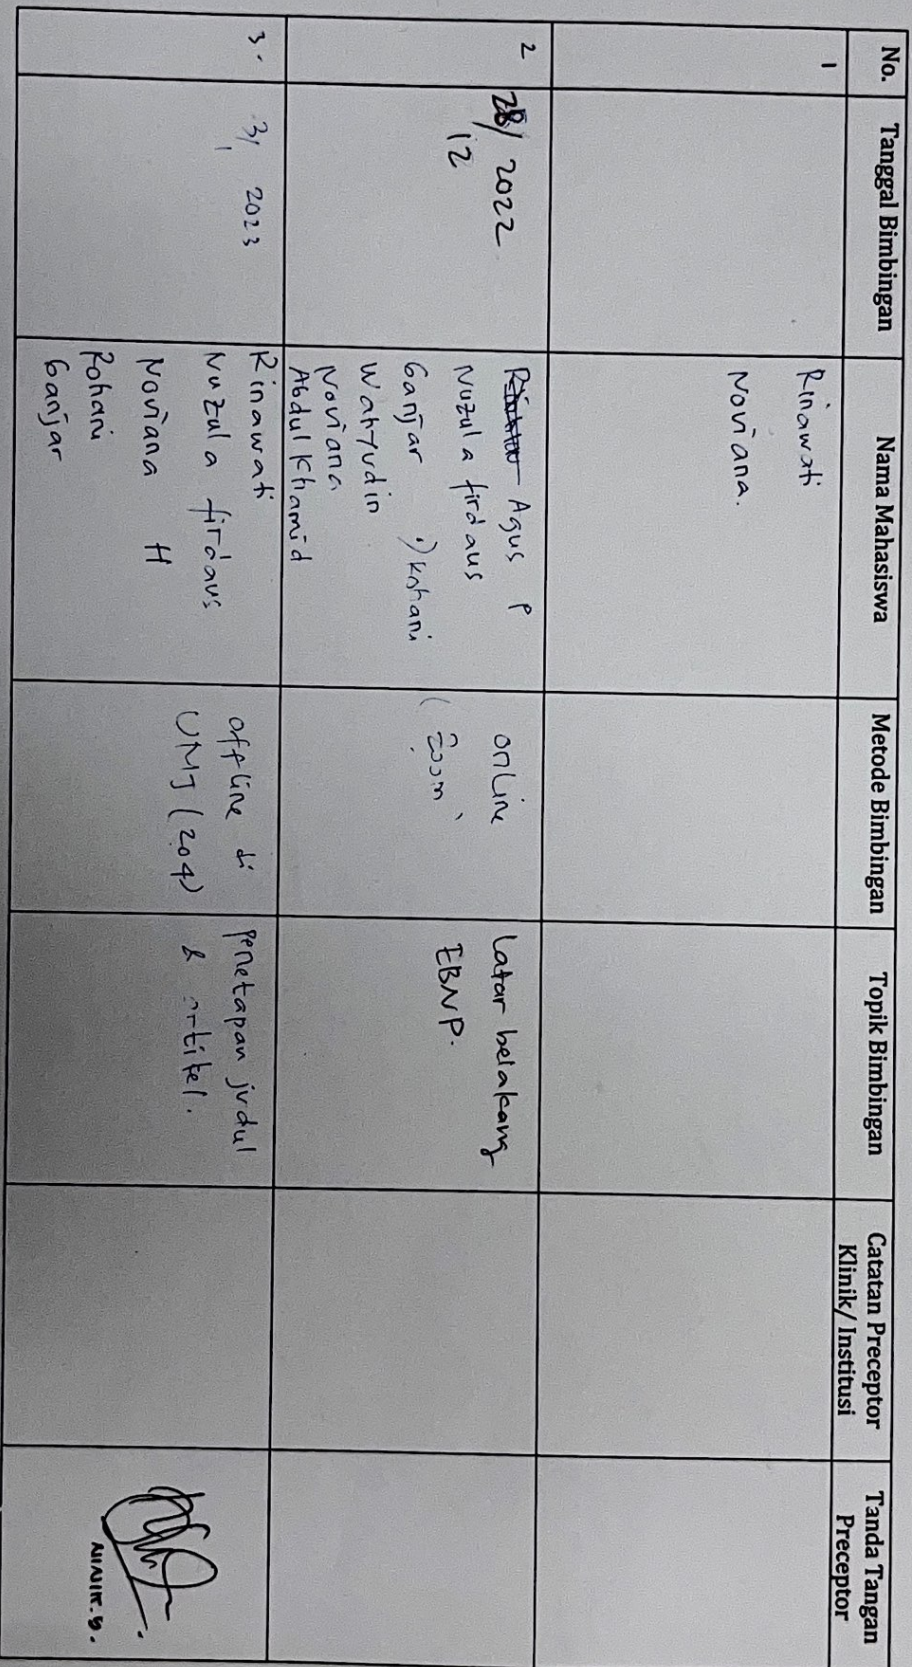 No. Tanggal Bimbingan Nama Mahasiswa Metode Bimbingan Topik Bimbingan Catatan Preceptor Klinik/ Institusi Tanda Tangan Preceptor
1
Rinawati
Noviana.
2
28/12 2022
Agus P
Nuzula firdaus
Ganjar
Wahyudin
Noviana
Abdul Khamid
online
(Zoom)
Latar belakang
EBNP.
3.
3/1 2023
Rinawati
Nuzula firdaus
Noviana H
Rohani
Ganjar
offline di
UMJ (204)
penetapan judul
& artikel.
NINIK.S.